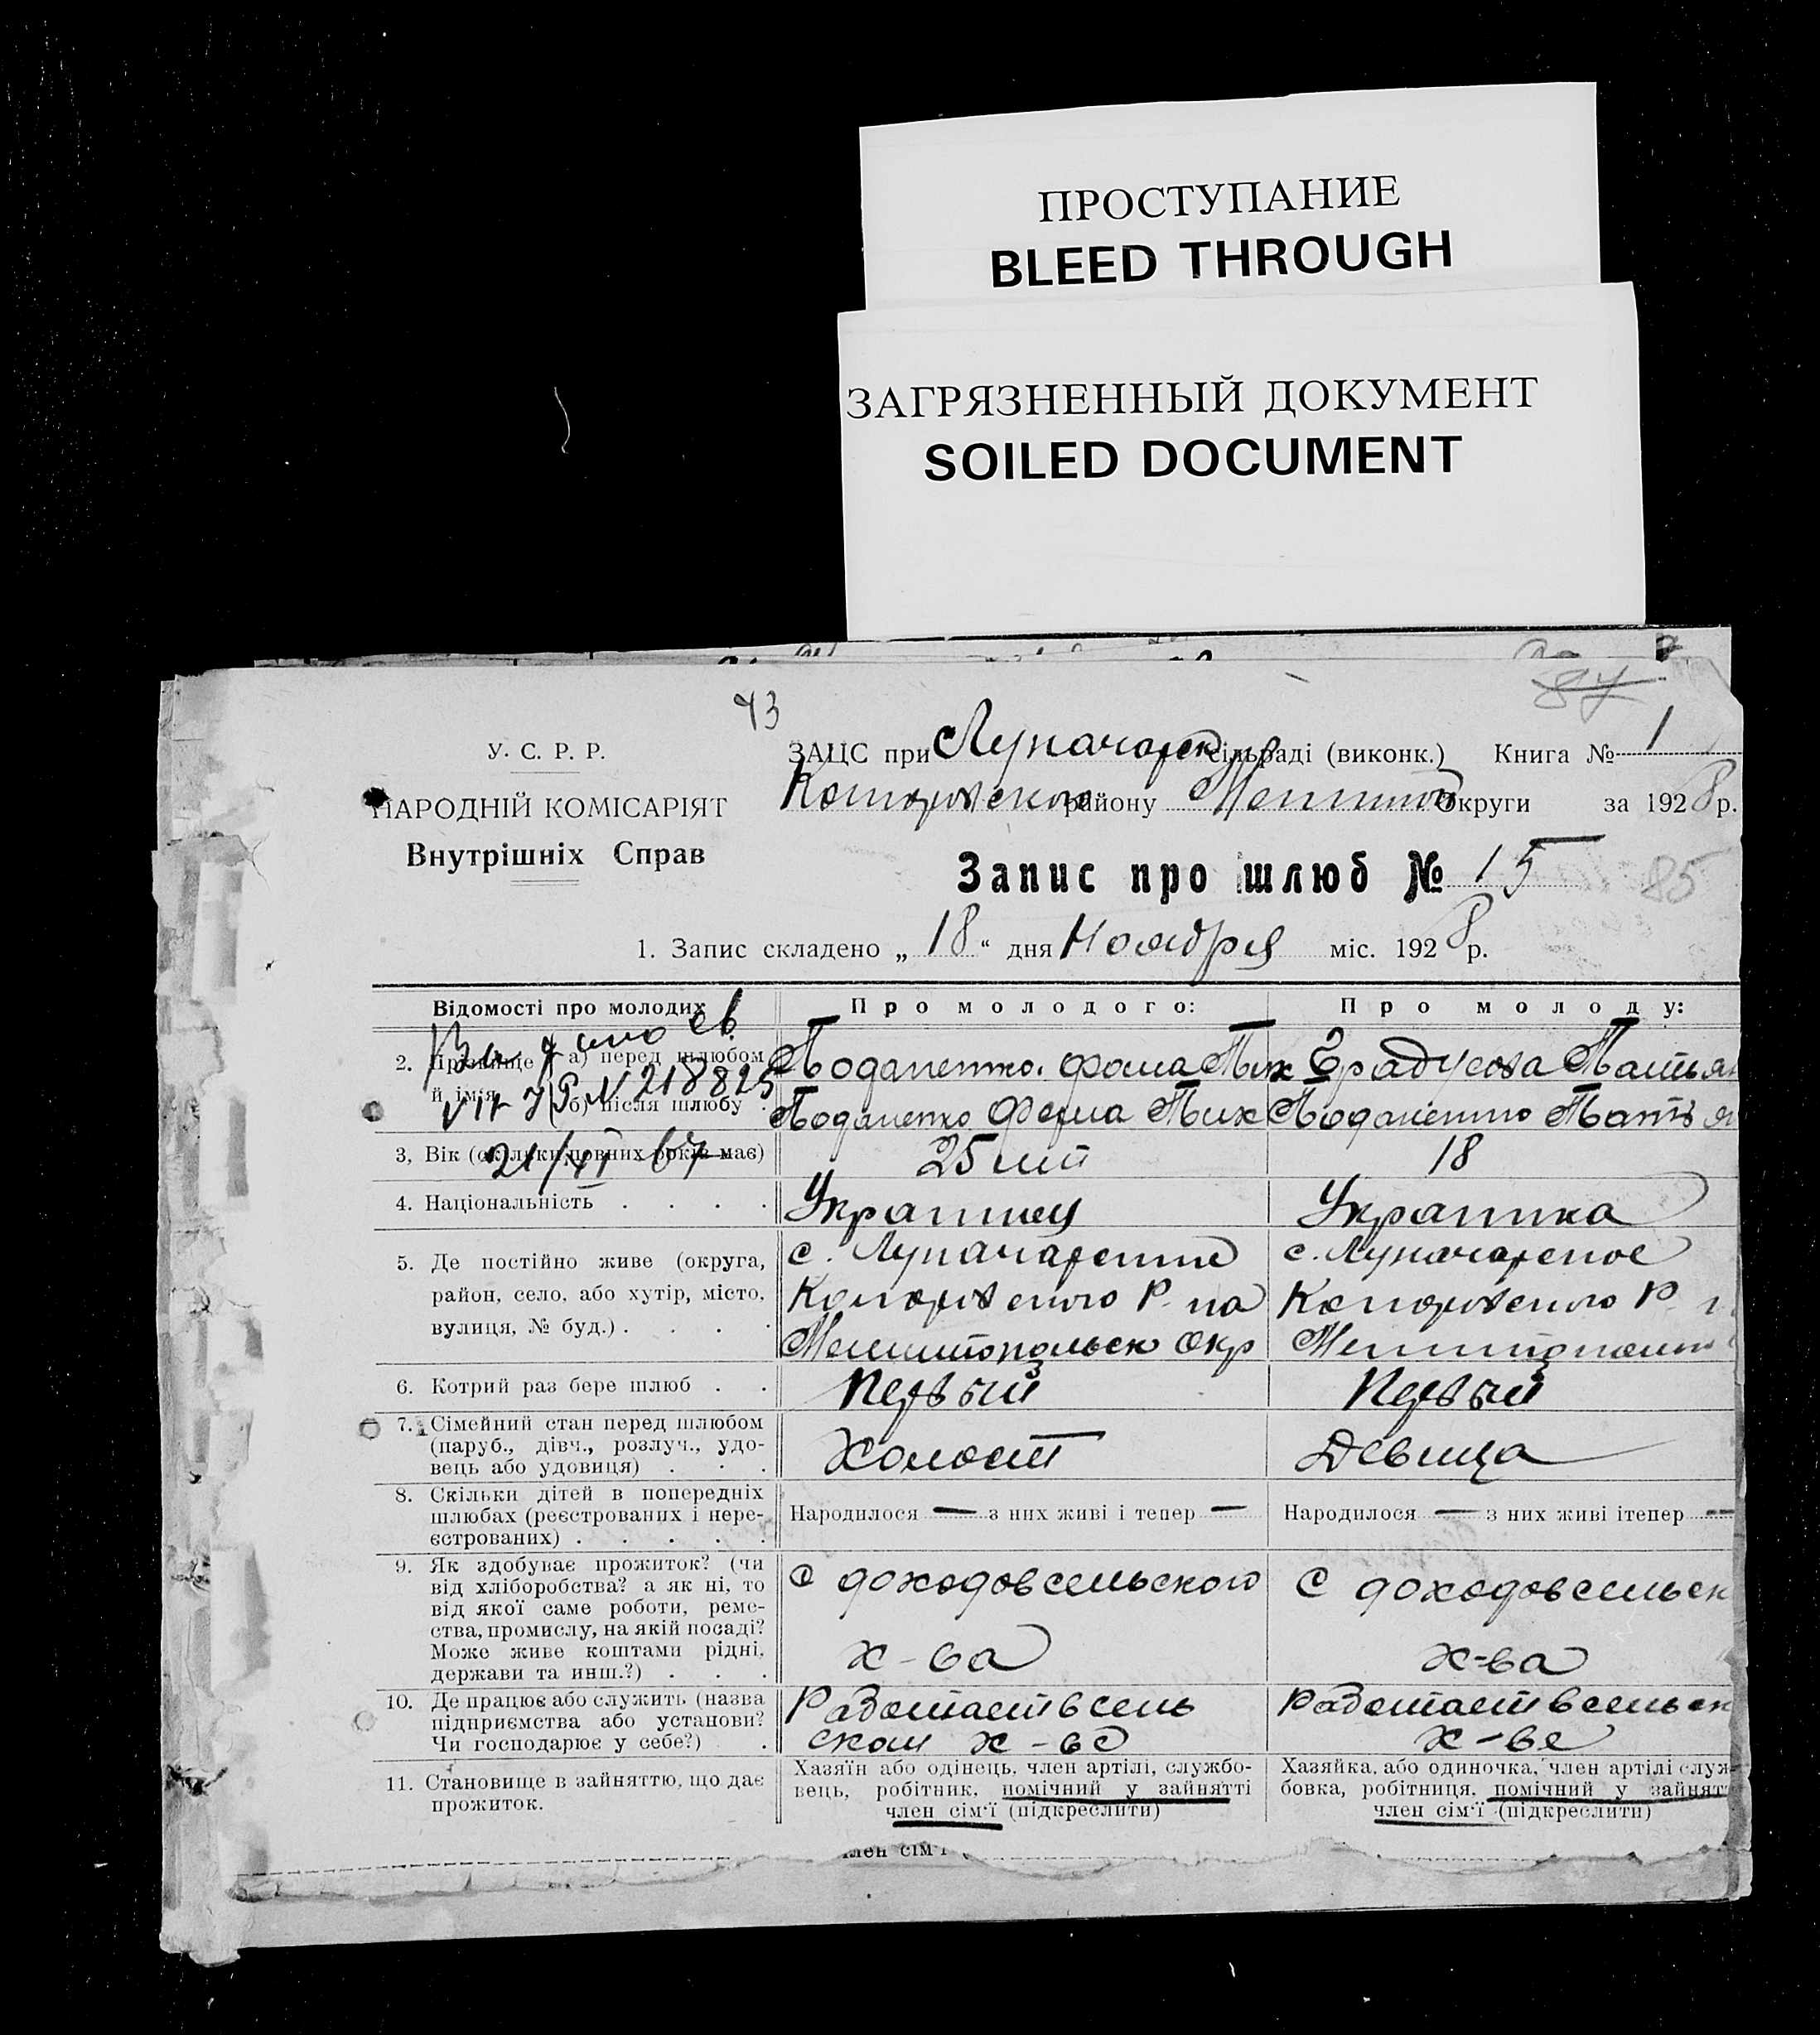 ПРОСТУПАНИЕ
BLEED THROUGH
ЗАГРЯЗНЕННЫЙ ДОКУМЕНТ
SOILED DOCUMENT
84
43
У. С. Р. Р.
НАРОДНІЙ КОМІСАРІЯТ
Внутрішніх Справ
ЗАЦС при Луначарск сільраді (виконк.) Книга № 1
району Мелитоп Округи за 1928 р.
Запис про шлюб № 15
85
1. Запис складено „ 18 “ дня Ноября міс. 1928 р.
Відомості про молодих Про молодого: Про молоду:
2. Прізвище й ім'я
а) перед шлюбом Фома Тих Татьян
б) після шлюбу Фома Тих
Выдано св.
№ 218825
3, Вік (скільки повних років має) 25 лет 18
21/VI 67
4. Національність . . . . Украинец Украинка
5. Де постійно живе (округа, район, село, або хутір, місто, вулиця, № буд.) . . . .
с. Луначарское
Р-на
Мелитопольск Окр
6. Котрий раз бере шлюб . . Первый Первый
7. Сімейний стан перед шлюбом (паруб., дівч., розлуч., удовець або удовиця) . . . Холост Девица
8. Скільки дітей в попередніх шлюбах (реєстрованих і нереєстрованих) . . . . .
Народилося — з них живі і тепер —
Народилося — з них живі ітепер —
9. Як здобуває прожиток? (чи від хліборобства? а як ні, то від якої саме роботи, ремества, промислу, на якій посаді? Може живе коштами рідні, держави та инш.?) . . .
С доходов сельского
х-ва
С доходов сельск
х-ва
10. Де працює або служить (назва підприємства або установи? Чи господарює у себе?) .
Работает в сель
ском х-ве
Работает в сельск
х-ве
11. Становище в зайняттю, що дає прожиток.
Хазяїн або одінець, член артілі, службо-
вець, робітник, помічний у зайнятті
член сім'ї (підкреслити)
Хазяйка, або одиночка, член артілі служ-
бовка, робітниця, помічний у зайнят
член сім'ї (підкреслити)
член сім'ї